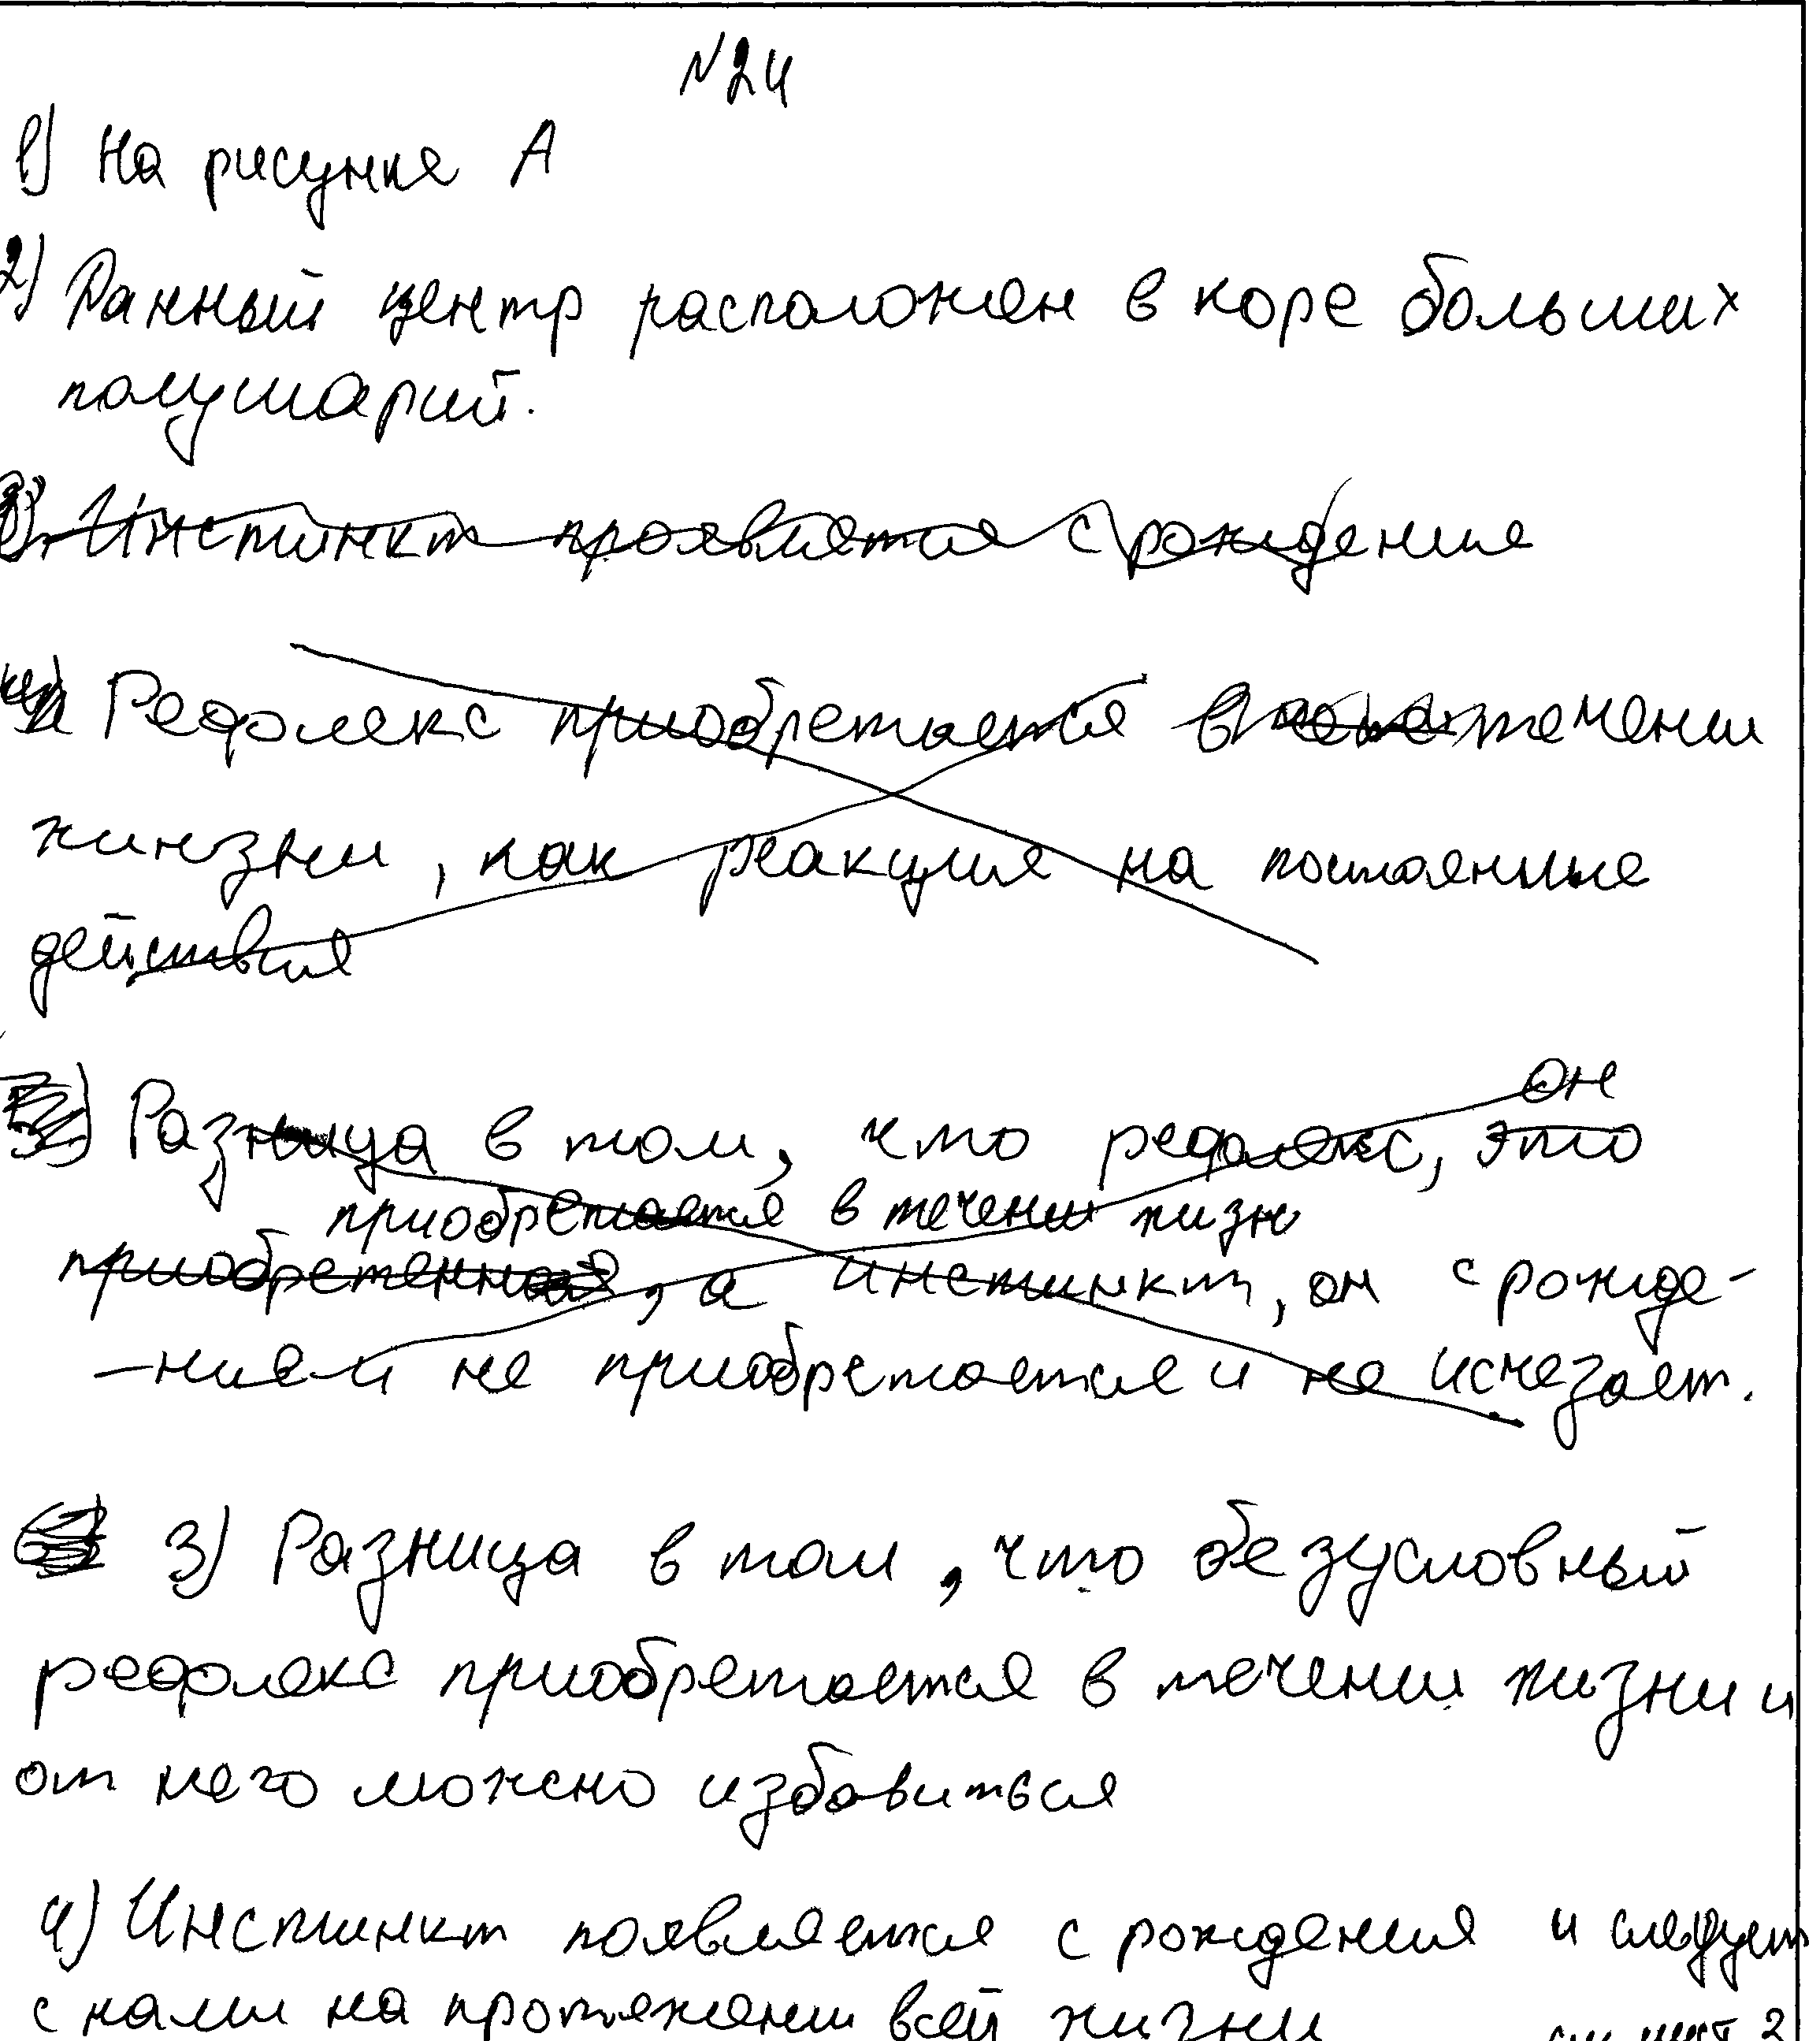 N24
1) На рисунке А
2) Данный центр расположен в коре больших
полушарий.
3) Инстинкт проявляется с рождения
4) Рефлекс приобретается в течении
жинзни, как реакция на постоянные
действия
5) Разница в том, что рефлекс, это он
приобретается в течении жизн
приобретенная, а инстинкт, он с рожде-
-нием не приобретается и не исчезает.
3) Разница в том, что безусловный
рефлекс приобретается в течении жизни и
от него можно избавиться
4) Инстинкт появляется с рождения и следует
с нами на протяжении всей жизни см лист 2